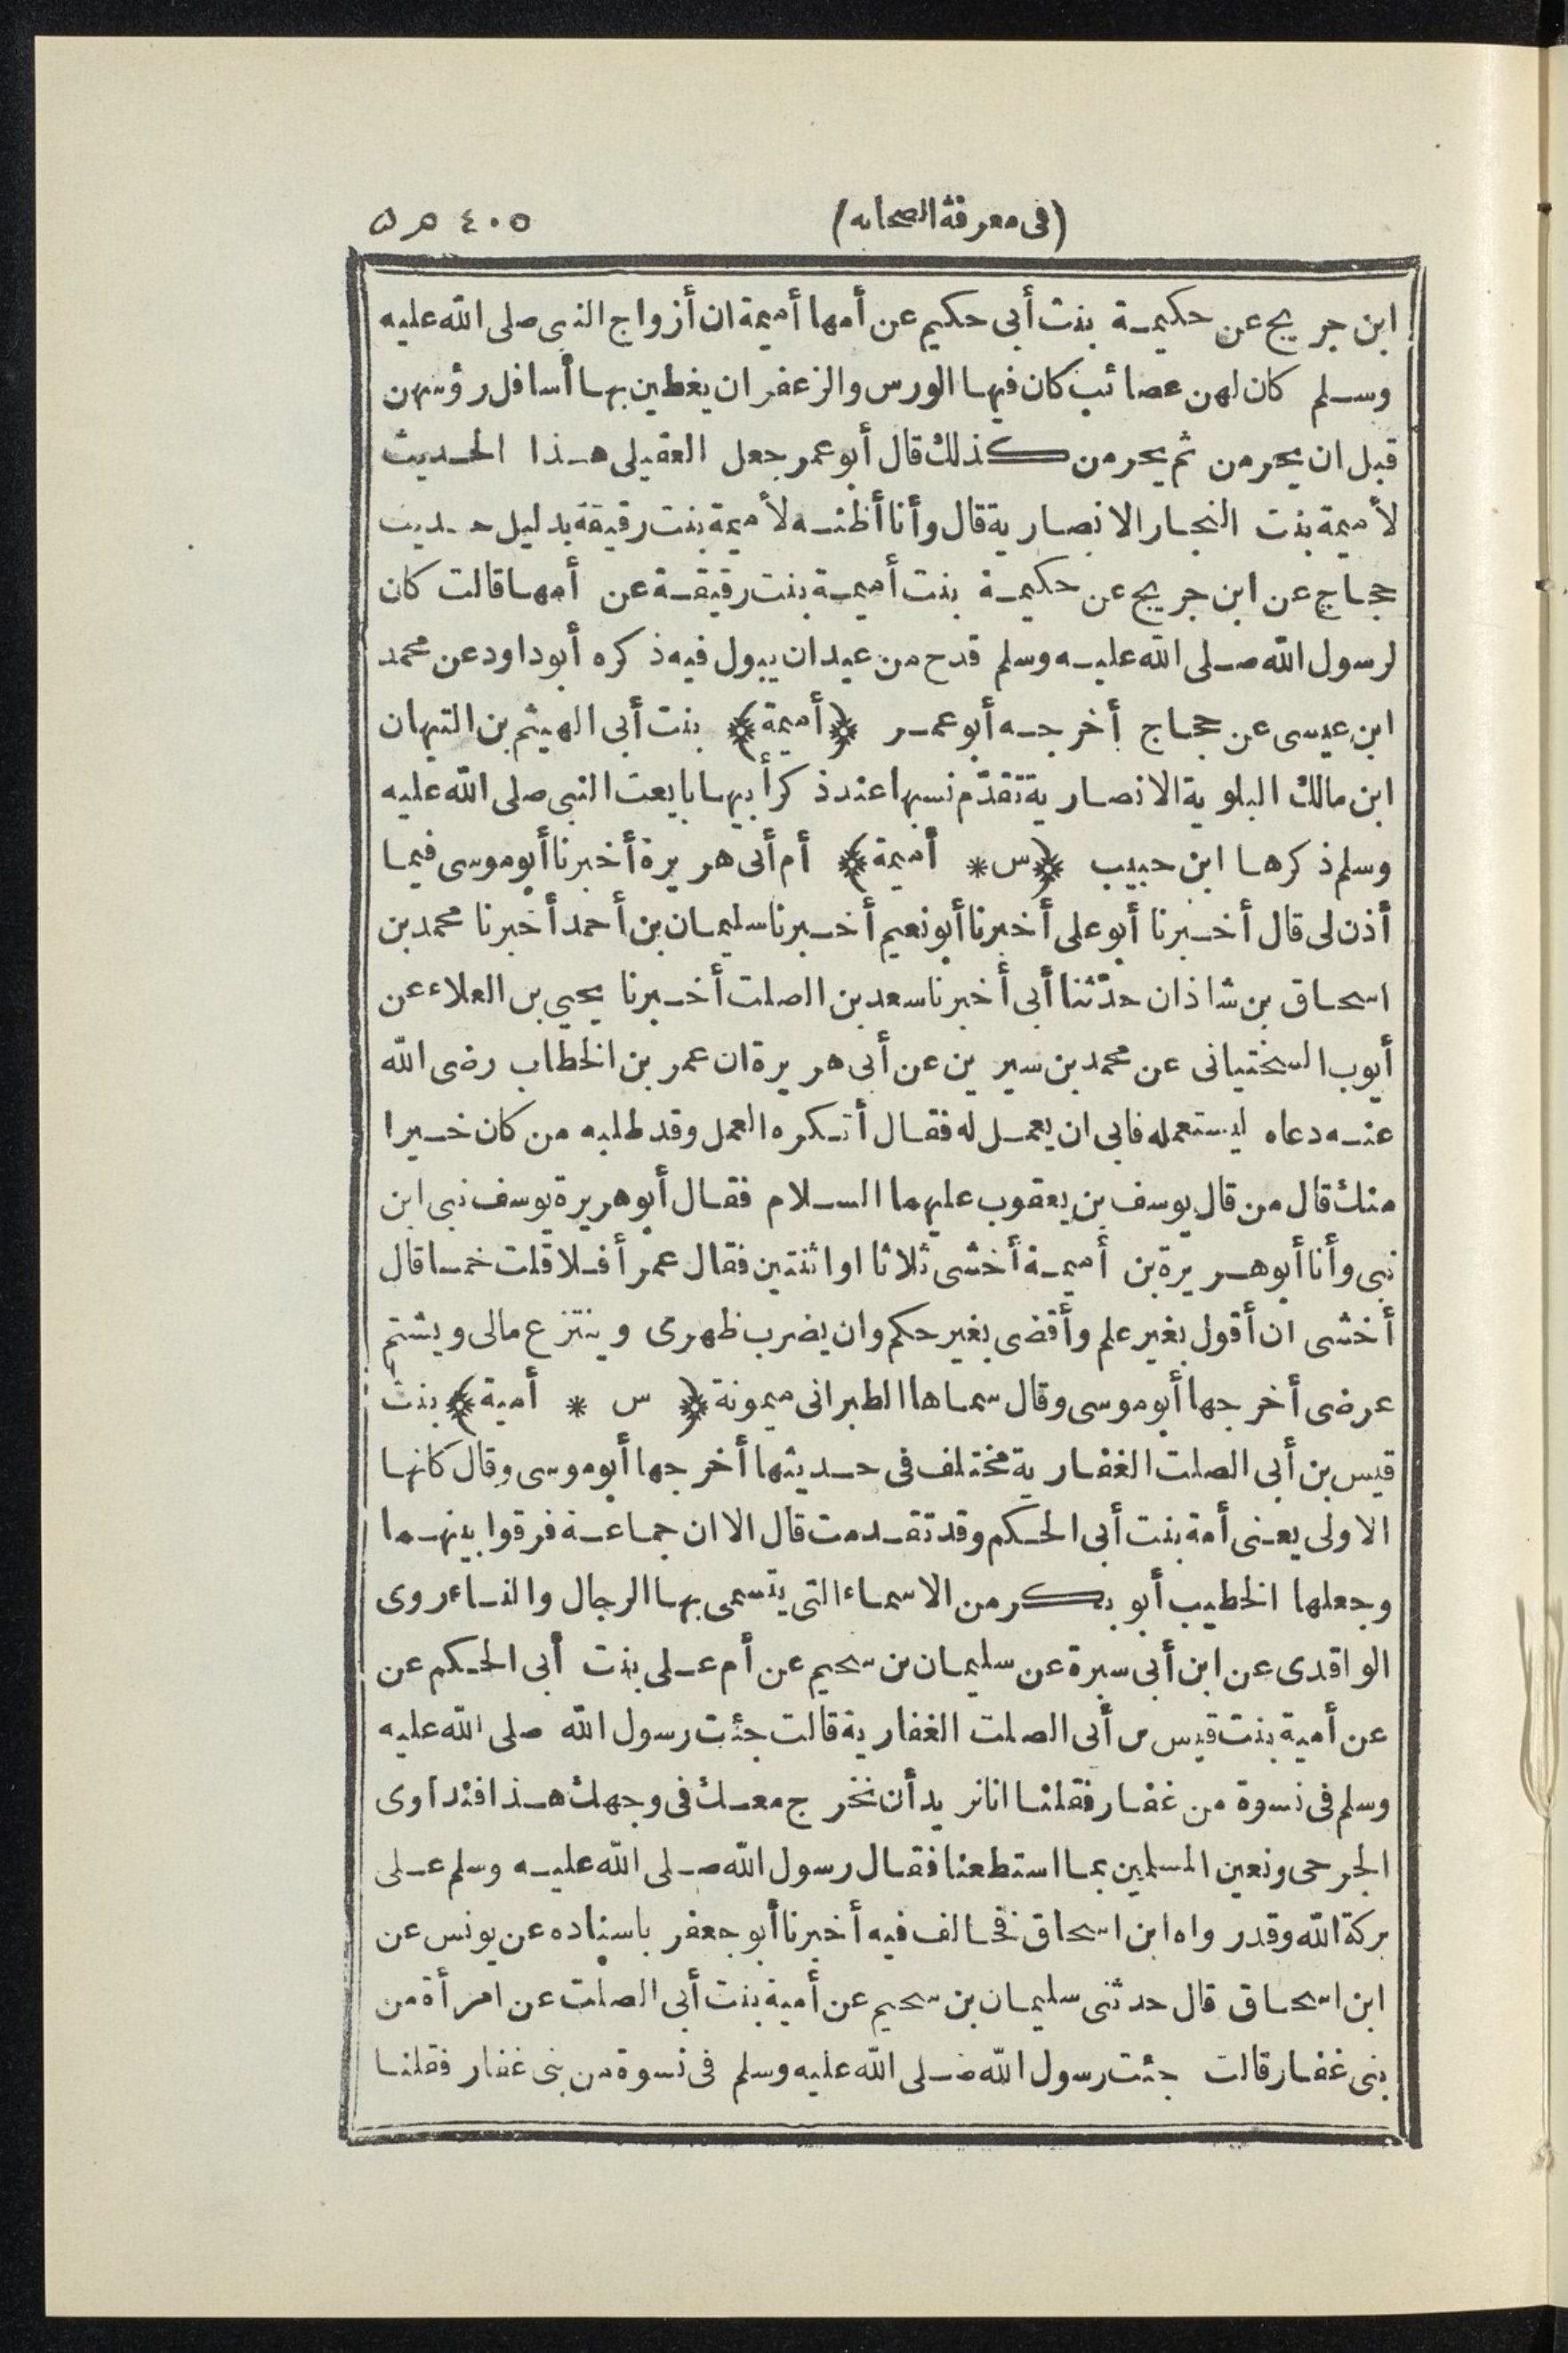 (فى معرفة الصحابه) ٤٠٥
ابن جريج عن حكيمة بنت أبى حكيم عن أمها أميمة ان أزواج النبى صلى الله عليه
وسلم كان لهن عصائب كان فيها الورس والزعفران يغطين بها أسافل رؤسهن
قبل ان يحرمن ثم يحرمن كذلك قال أبو عمر جعل العقيلى هذا الحديث
لأميمة بنت النجار الانصارية قال وأنا أظنه لأميمة بنت رقيقة بدليل حديث
حجاج عن ابن جريج عن حكيمة بنت أميمة بنت رقيقة عن أمها قالت كان
لرسول الله صلى الله عليه وسلم قدح من عيدان يبول فيه ذكره أبو داود عن محمد
ابن عيسى عن حجاج أخرجه أبو عمر ﴿أميمة﴾ بنت أبى الهيثم بن التيهان
ابن مالك البلوية الانصارية تقدّم نسبها عند ذكر أبيها بايعت النبى صلى الله عليه
وسلم ذكرها ابن حبيب ﴿س * أميمة﴾ أم أبى هريرة أخبرنا أبو موسى فيما
أذن لى قال أخبرنا أبو على أخبرنا أبو نعيم أخبرنا سليمان بن أحمد أخبرنا محمد بن
اسحاق بن شاذان حدّثنا أبى أخبرنا سعد بن الصلت أخبرنا يحيى بن العلاء عن
أيوب السختيانى عن محمد بن سيرين عن أبى هريرة ان عمر بن الخطاب رضى الله
عنه دعاه ليستعمله فابى ان يعمل له فقال أتكره العمل وقد طلبه من كان خيرا
منك قال من قال يوسف بن يعقوب عليهما السلام فقال أبو هريرة يوسف نبى ابن
نبى وأنا أبو هريرة بن أميمة أخشى ثلاثا او اثنتين فقال عمر أفلا قلت خمسا قال
أخشى ان أقول بغير علم وأقضى بغير حكم وان يضرب ظهرى وينتزع مالى ويشتم
عرضى أخرجها أبو موسى وقال سماها الطبرانى ميمونة ﴿ س * أمية ﴾ بنت
قيس بن أبى الصلت الغفارية مختلف فى حديثها أخرجها أبو موسى وقال كانها
الاولى يعنى أمة بنت أبى الحكم وقد تقدمت قال الا ان جماعة فرقوا بينهما
وجعلها الخطيب أبو بكر من الاسماء التى يتسمى بها الرجال والنساء روى
الواقدى عن ابن أبى سبرة عن سليمان بن سحيم عن أم على بنت أبى الحكم عن
عن أمية بنت قيس بن أبى الصلت الغفارية قالت جئت رسول الله صلى الله عليه
وسلم فى نسوة من غفار فقلنا انا نريد أن نخرج معك فى وجهك هذا فنداوى
الجرحى ونعين المسلمين بما استطعنا فقال رسول الله صلى الله عليه وسلم على
بركة الله وقد رواه ابن اسحاق فخالف فيه أخبرنا أبو جعفر باسناده عن يونس عن
ابن اسحاق قال حدثنى سليمان بن سحيم عن أمية بنت أبى الصلت عن امرأة من
بنى غفار قالت جئت رسول الله صلى الله عليه وسلم فى نسوة من بنى غفار فقلنا